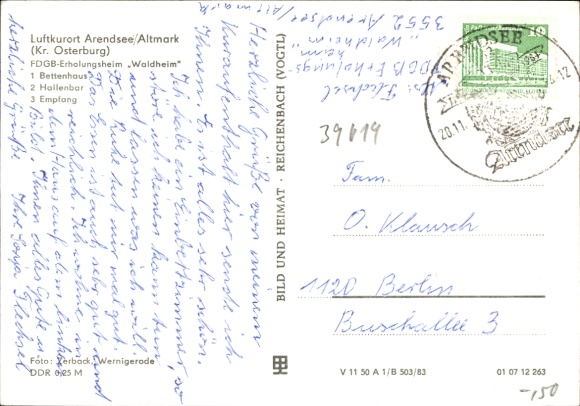 Luftkurort Arendsee/Altmark
(Kr. Osterburg)
FDGB-Erholungsheim „Waldheim"
1 Bettenhaus
2 Hallenbar
3 Empfang
Herzliche Grüße von meinem
Kuraufenthalt hier sende ich
Ihnen. Es ist alles sehr schön.
Ich habe ein Einbettzimmer, so
störe ich keinen, kann tun
und lassen was ich will.
Die Ruhe tut mir mal gut.
Das Essen ist auch sehr gut und
reichlich. Ich wohne in
dem Haus auf dem linken
Bild. Ihnen alles Gute u.
herzliche Grüße Ihre Sonja Flechsel
Foto: Zerback, Wernigerode
DDR 0,25 M
BILD UND HEIMAT · REICHENBACH (VOGTL)
Flechsel
FDGB Erholungs-
heim
„Waldheim"
3552 Arendsee/
Altmark
10
ARENDSEE
20.11.
-12
39619
Fam.
O. Klausch
1120 Berlin
Buschallee 3
V 11 50 A 1/B 503/83
01 07 12 263
-,50